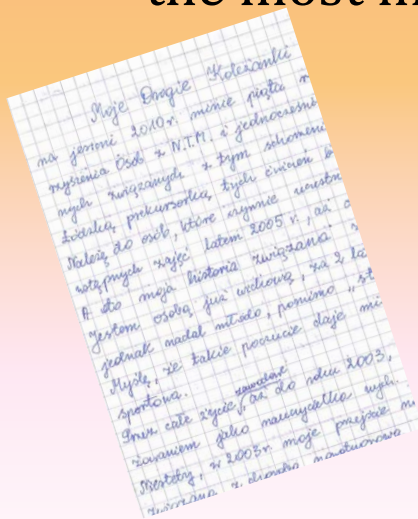 the most m
Moje Drogie Koleżanki
na jesieni 2010 r. minie piąta r
zrzeszenia Osób z N.T.M. i jednocześni
nych związanych z tym schorzeni
Łódzką prekursorką tych ćwiczeń
Należę do osób, które czynnie uczestn
wstępnych zajęć latem 2005 r., aż
A oto moja historia związana
Jestem osobą już wiekową, za 2 la
jednak nadal młodo, pomimo
Myślę, że takie poczucie daje mi
sportowa.
Przez całe życie zawodowe aż do roku 2003,
jako nauczycielka wych.
Niestety, w 2003 r. moje przejście
związana z chorobą